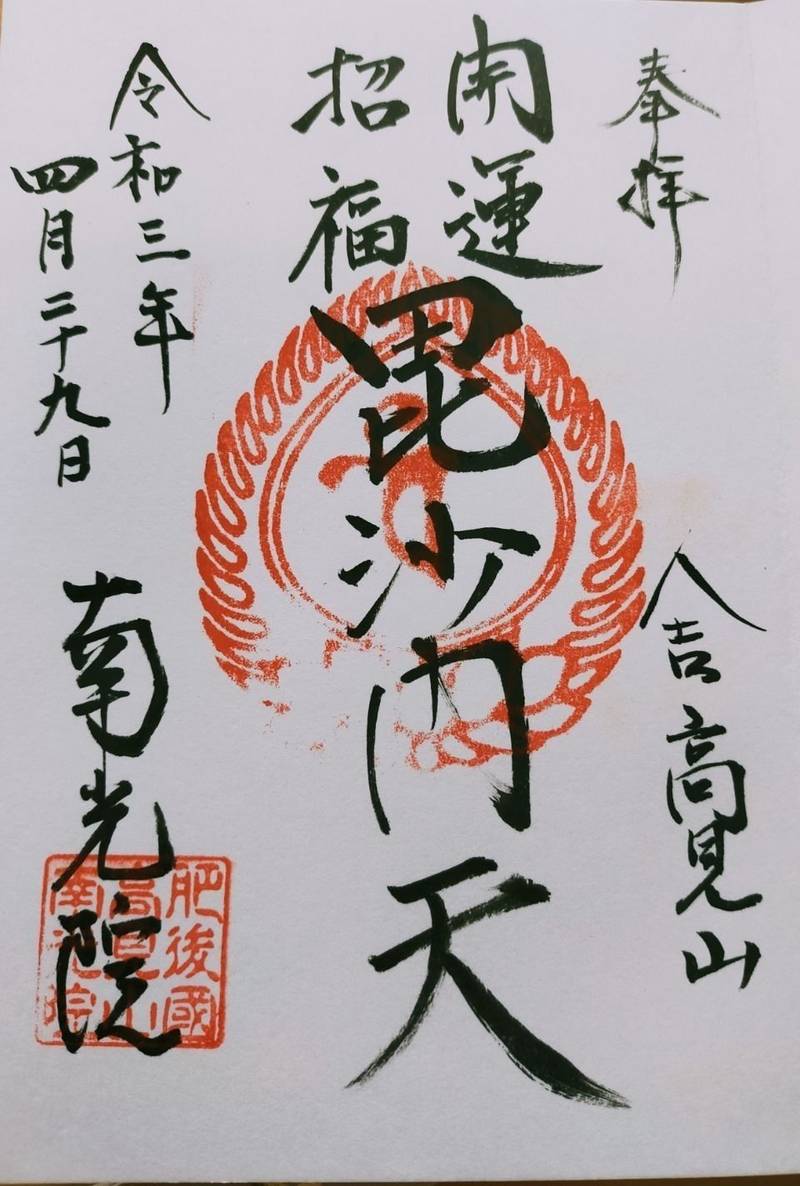 奉拝
人吉高見山
開運
招福
毘沙門天
令和三年
四月二十九日
南光院
肥後國
高見山
南光院